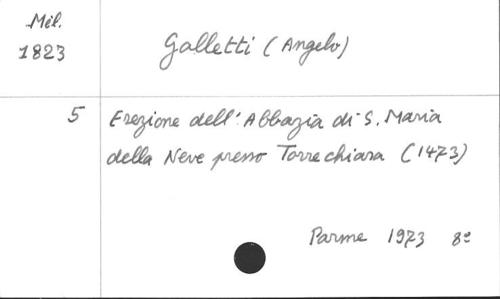 Mél.
1823
Galletti (Angelo)
5
Erezione dell'Abbazia di S. Maria
della Neve presso Torrechiara (1473)
Parme 1973 8º